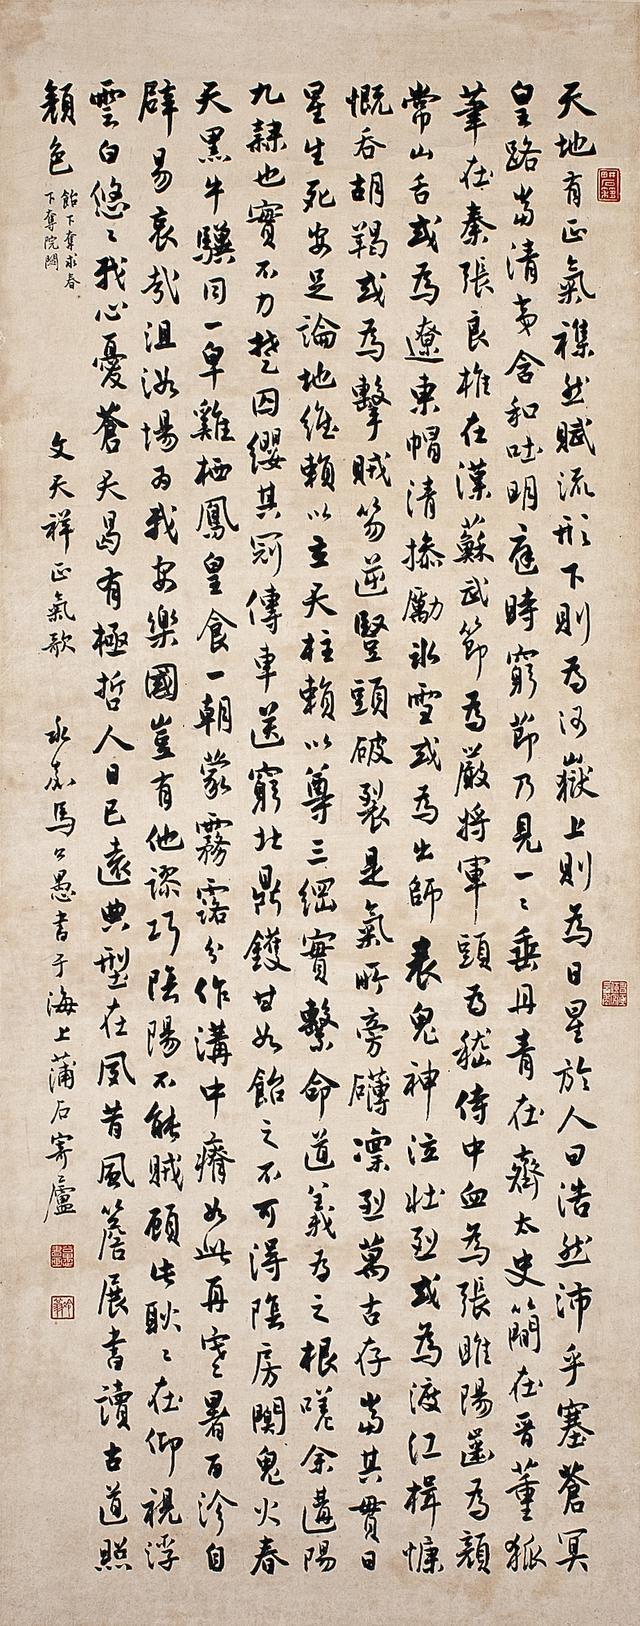 天地有正氣襍然賦流形下則為河嶽上則為日星於人曰浩然沛乎塞蒼冥
皇路當清夷含和吐明庭時窮節乃見一ヽ垂丹青在齊太史簡在晉董狐
筆在秦張良椎在漢蘇武節為嚴將軍頭為嵇侍中血為張睢陽齒為顏
常山舌或為遼東帽清操勵冰雪或為出師表鬼神泣壯烈或為渡江楫慷
慨吞胡羯或為擊賊笏逆豎頭破裂是氣所旁礴凜烈萬古存當其貫日
星生死安足論地維賴以立天柱賴以尊三綱實繫命道義為之根嗟余遘陽
九隷也實不力楚囚纓其冠傳車送窮北鼎鑊甘如飴之不可得陰房闃鬼火春
天黑牛驥同一皁雞栖鳳皇食一朝蒙霧露分作溝中瘠如此再寒暑百沴自
辟易哀哉沮洳場為我安樂國豈有他謬巧陰陽不能賊顧此耿ヽ在仰視浮
雲白悠ヽ我心憂蒼天曷有極哲人日已遠典型在夙昔風簷展書讀古道照
顏色
飴下奪求春
下奪院閟
文天祥正氣歌
永嘉馬公愚書于海上蒲石寄廬